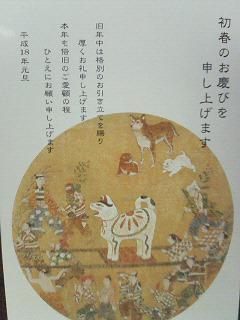 初春のお慶びを
申し上げます
旧年中は格別のお引き立てを賜り
厚くお礼申し上げます
本年も倍旧のご愛顧の程
ひとえにお願い申し上げます
平成18年元旦